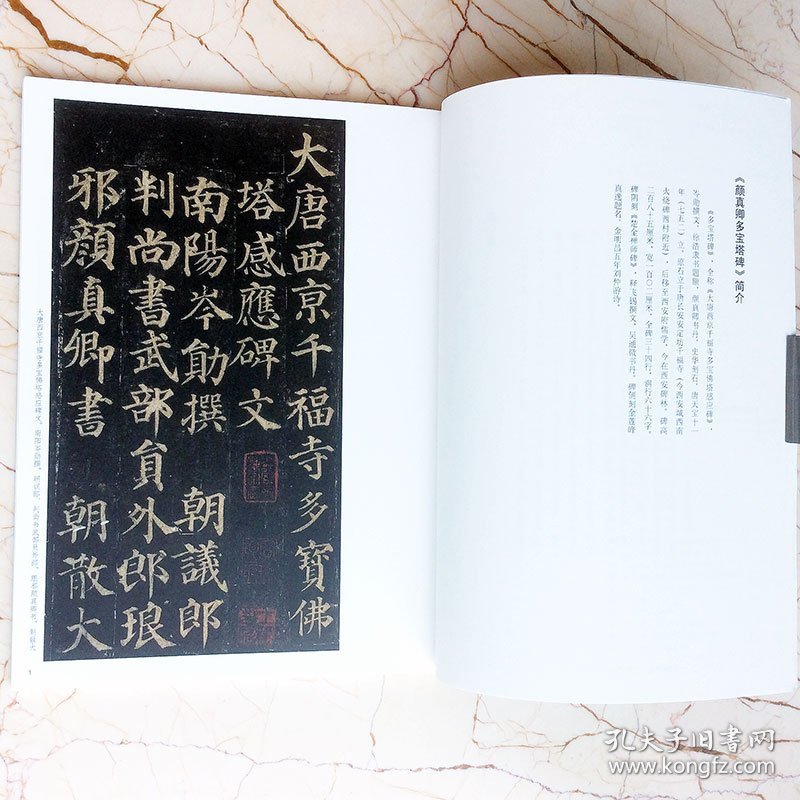 《颜真卿多宝塔碑》简介
《多宝塔碑》，全称《大唐西京千福寺多宝佛塔感应碑》，
岑勋撰文，徐浩隶书题额，颜真卿书丹，史华刻石，唐天宝十一
年（七五二）立，原石立于唐长安安定坊千福寺（今西安城西南
火烧碑西村附近），后移至西安府儒学，今在西安碑林。碑高
二百八十五厘米，宽一百〇二厘米，全碑三十四行，满行六十六字。
碑阴刻《楚金禅师碑》，释飞锡撰文，吴通微书丹，碑侧刻金莲峰
真逸题名，金明昌五年刘仲游诗。
大唐西京千福寺多寶佛
塔感應碑文
南陽岑勛撰 朝議郎
判尚書武部員外郎琅
邪顏真卿書 朝散大
大唐西京千福寺多宝佛塔感应碑文。南阳岑勋撰。朝议郎、判尚书武部员外郎、琅邪颜真卿书。朝散大
1
孔夫子旧书网
www.kongfz.com